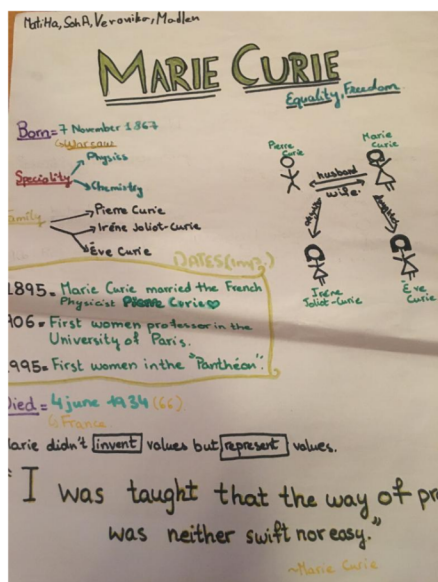 Matilda, SohA, Veronika, Madlen
MARIE CURIE
Equality, Freedom
Born = 7 November 1867
Warsaw
Physics
Speciality
Chemistry
Family
Pierre Curie
Irène Joliot-Curie
Ève Curie
Pierre Curie
Marie Curie
husband
wife
daughter
Irène Joliot-Curie
Ève Curie
DATES (imp.)
1895 = Marie Curie married the French
Physicist Pierre Curie
906 = First women professor in the
University of Paris.
1995 = First women in the "Panthéon".
Died = 4 june 1934 (66)
France
Marie didn't invent values but represent values.
"I was taught that the way of pr
was neither swift nor easy."
~Marie Curie